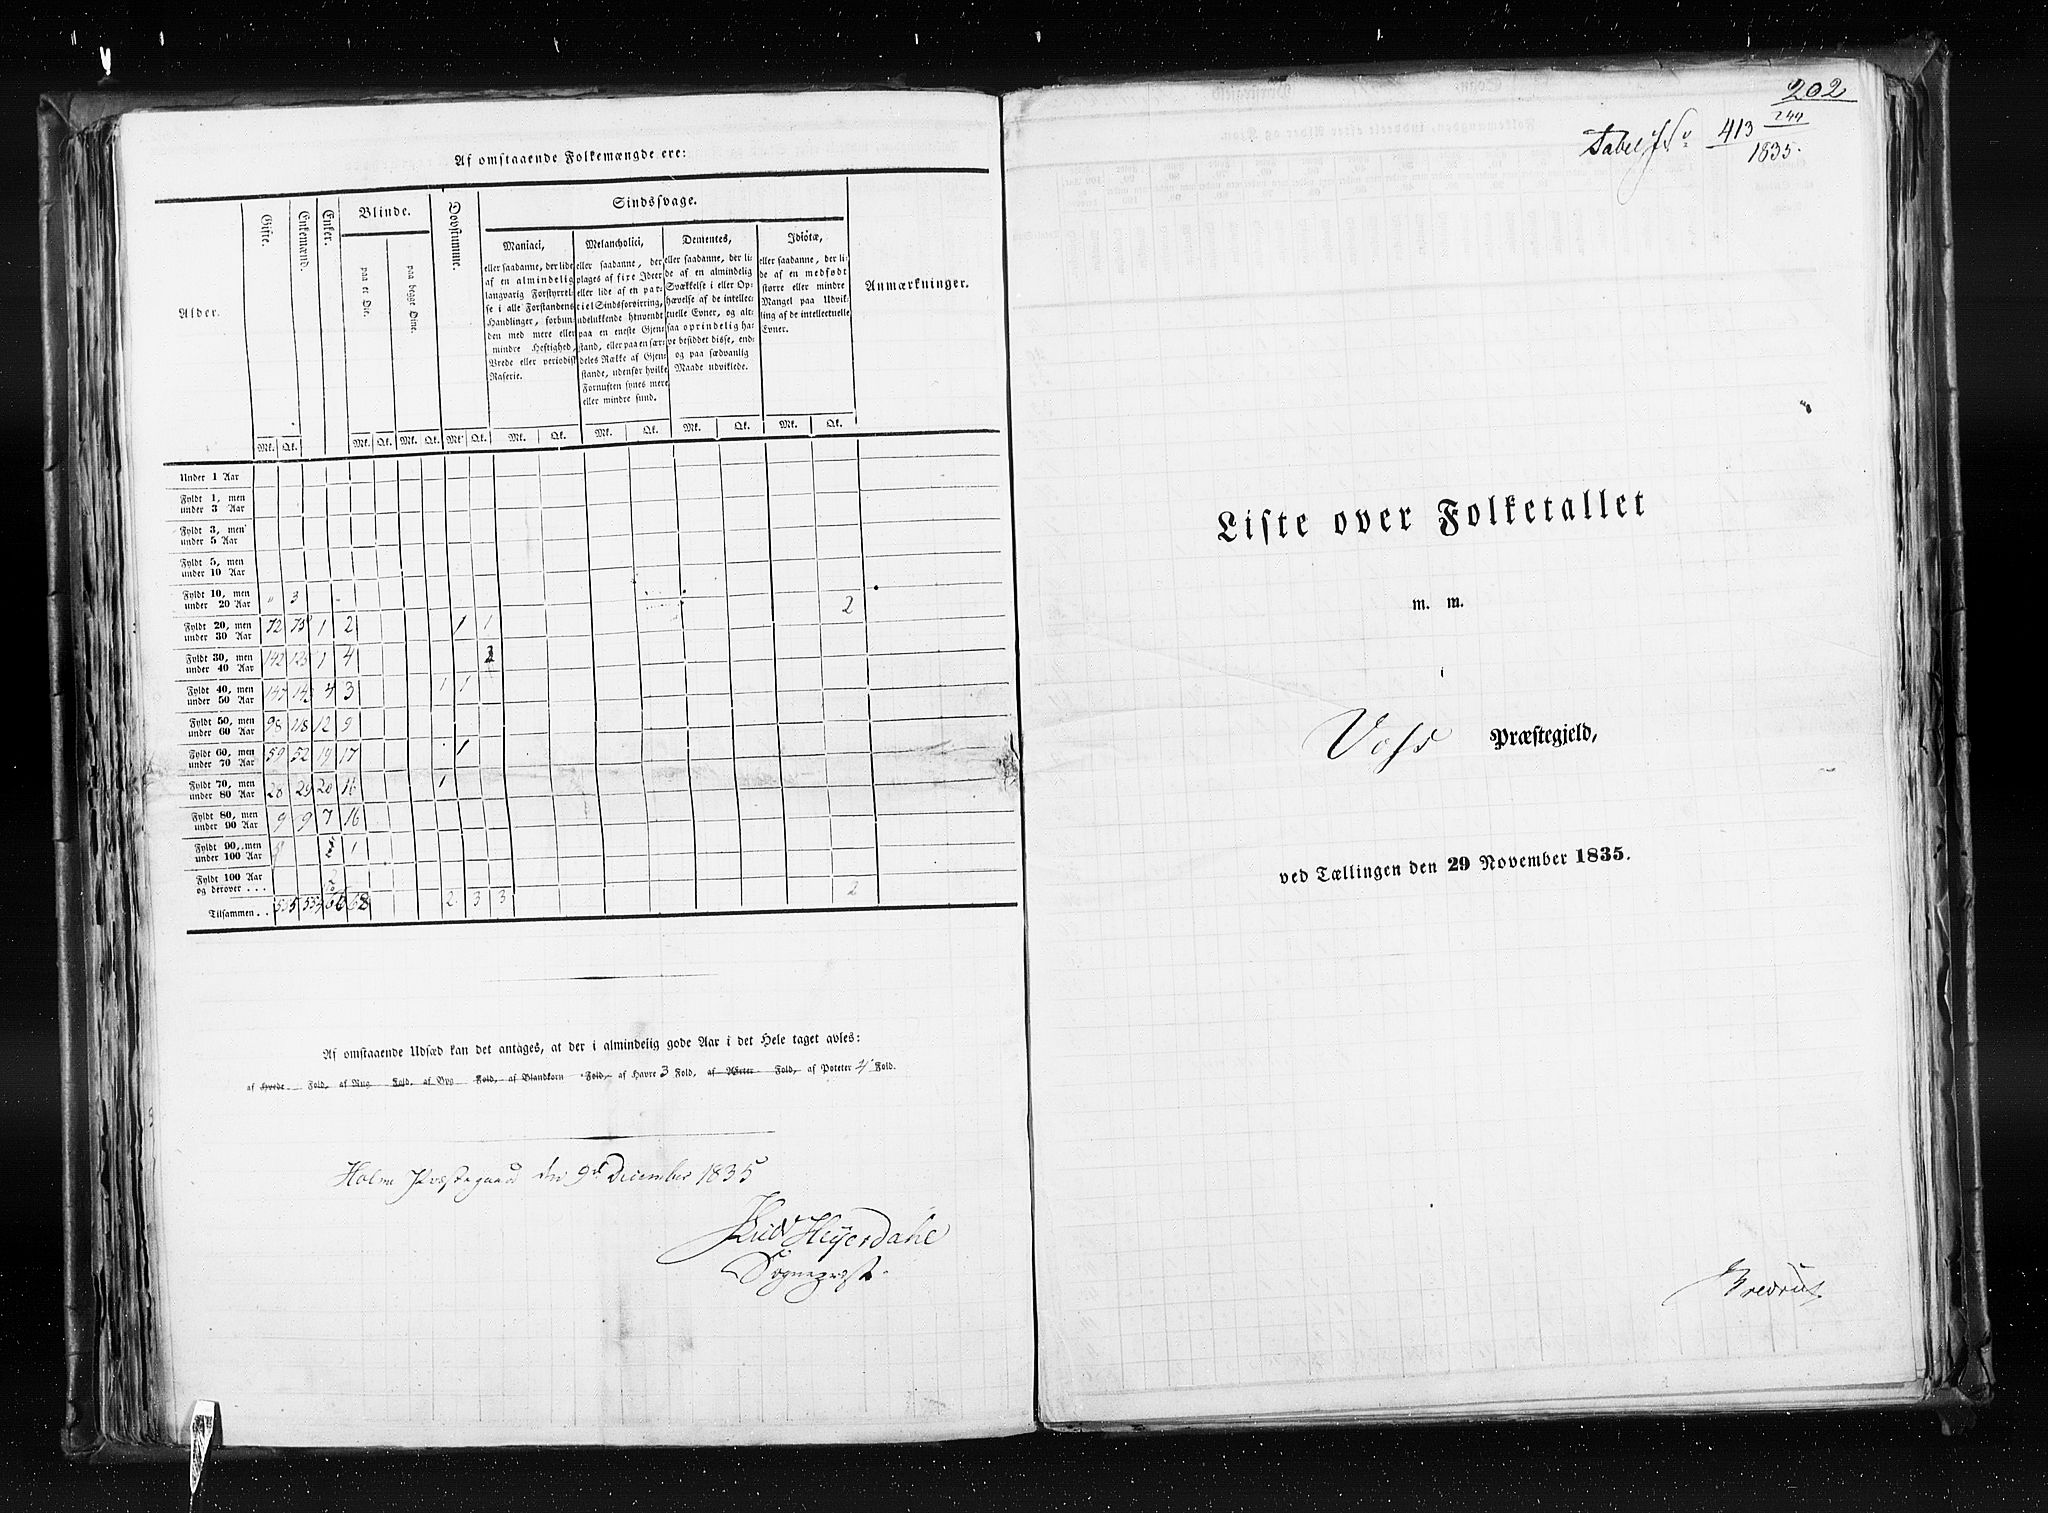 Af omstaaende Folkemængde ere:
Alder.
Gifte.
Enkemænd.
Enker.
Blinde.
paa et Øie.
paa begge Øine.
Døvstumme.
Sindssvage.
Maniaci,
eller saadanne, der lide
af en almindelig
langvarig Forstyrrel-
se i alle Forstandens
Handlinger, forbun-
den med mere eller
mindre Heftighed,
Vrede eller periodisk
Raserie.
Melancholici,
eller saadanne, der
plages af fixe Ideer
eller lide af en par-
tiel Sindsforvirring,
udelukkende henvendt
paa en eneste Gjen-
stand, eller paa en sær-
deles Række af Gjen-
stande, udenfor hvilke
Fornuften synes mere
eller mindre sund.
Dementes,
eller saadanne, der li-
de af en almindelig
Svækkelse i eller Op-
hævelse af de intellec-
tuelle Evner, og alt-
saa oprindelig ha-
ve besiddet disse, end-
og paa sædvanlig
Maade udviklede.
Idiotæ,
eller saadanne, der li-
de af en medfødt
større eller mindre
Mangel paa Udvik-
ling af de intellectuelle
Evner.
Anmærkninger.
Mk. Qk. Mk. Qk. Mk. Qk. Mk Qk. Mk. Qk. Mk. Qk. Mk. Qk. Mk. Qk.
Under 1 Aar
Fyldt 1, men
under 3 Aar
Fyldt 3, men
under 5 Aar
Fyldt 5, men
under 10 Aar
Fyldt 10, men
under 20 Aar " 3 2
Fyldt 20, men
under 30 Aar 72 75 1 2 1 1
Fyldt 30, men
under 40 Aar 142 125 1 4
Fyldt 40, men
under 50 Aar 147 143 4 3 1 1
Fyldt 50, men
under 60 Aar 98 118 12 9
Fyldt 60, men
under 70 Aar 59 52 19 17 1
Fyldt 70, men
under 80 Aar 28 29 20 16 1
Fyldt 80, men
under 90 Aar 9 9 7 16
Fyldt 90, men
under 100 Aar 1
Fyldt 100 Aar
og derover . . .
Tilsammen . . 66 68 2 3 3 2
Af omstaaende Udsæd kan det antages, at der i almindelig gode Aar i det Hele taget avles:
af Hvede Fold, af Rug Fold, af Byg Fold, af Blandkorn Fold, af Havre 3 Fold, af Ærter Fold, af Poteter 4 Fold.
Holme Præstegaard den 9d December 1835
Heyerdahl
Sognepræst.
202
244
Tabel No 413
1835.
Liste over Folketallet
m. m.
i
Voss Præstegjeld,
ved Tællingen den 29 November 1835.